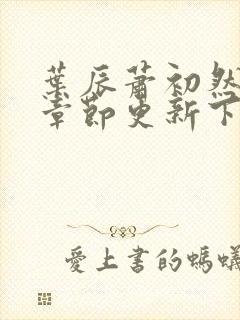 葉辰蕭初然
章節更新下
愛上書的螞蟻